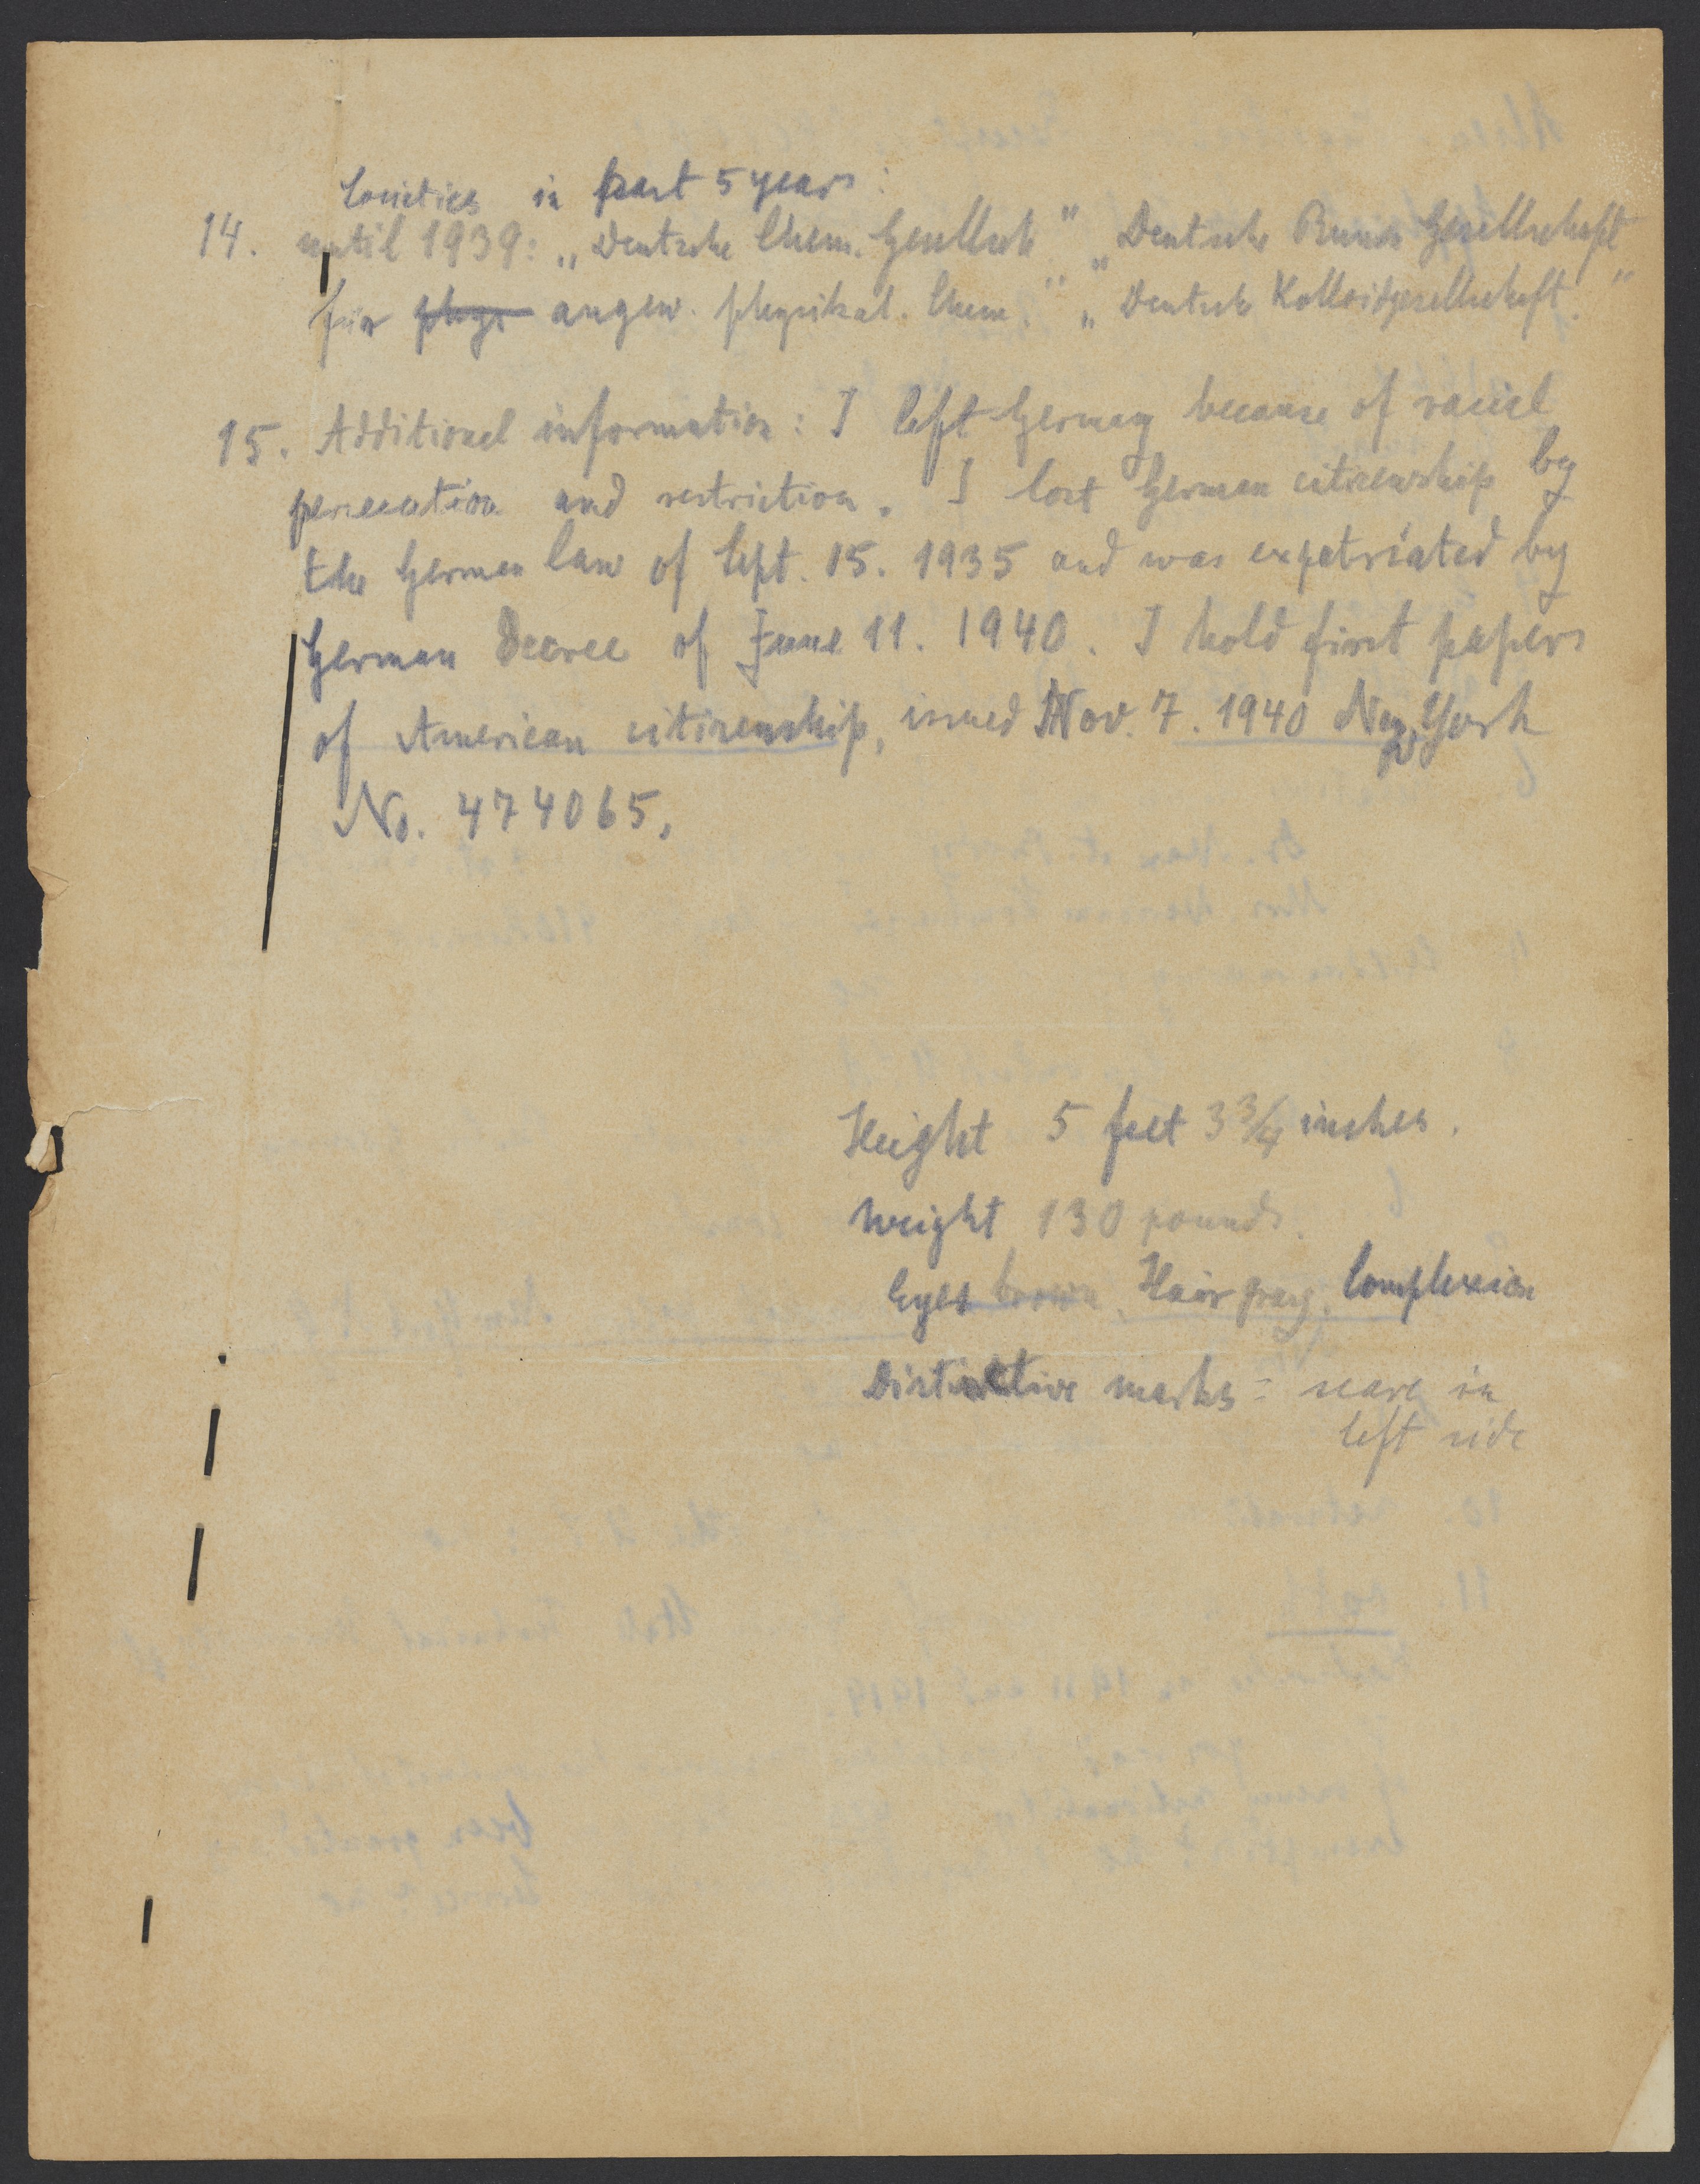 Societies in past 5 years:
14. until 1939: „Deutsche Chem. Gesellsch" „Deutsche Bunsen Gesellschaft
für phys angew. physikal. Chem." „Deutsch Kolloidgesellschaft."
15. Additional information: I left Germany because of racial
persecution and restriction. I lost German citizenship by
the German law of Sept. 15. 1935 and was expatriated by
German Decree of June 11. 1940. I hold first papers
of American citizenship, issued Nov. 7. 1940 New York
No. 474065.
Height 5 feet 3 3/4 inches.
Weight 130 pounds.
Eyes brown, Hair gray, Complexion
Distinctive marks = scare in
left side